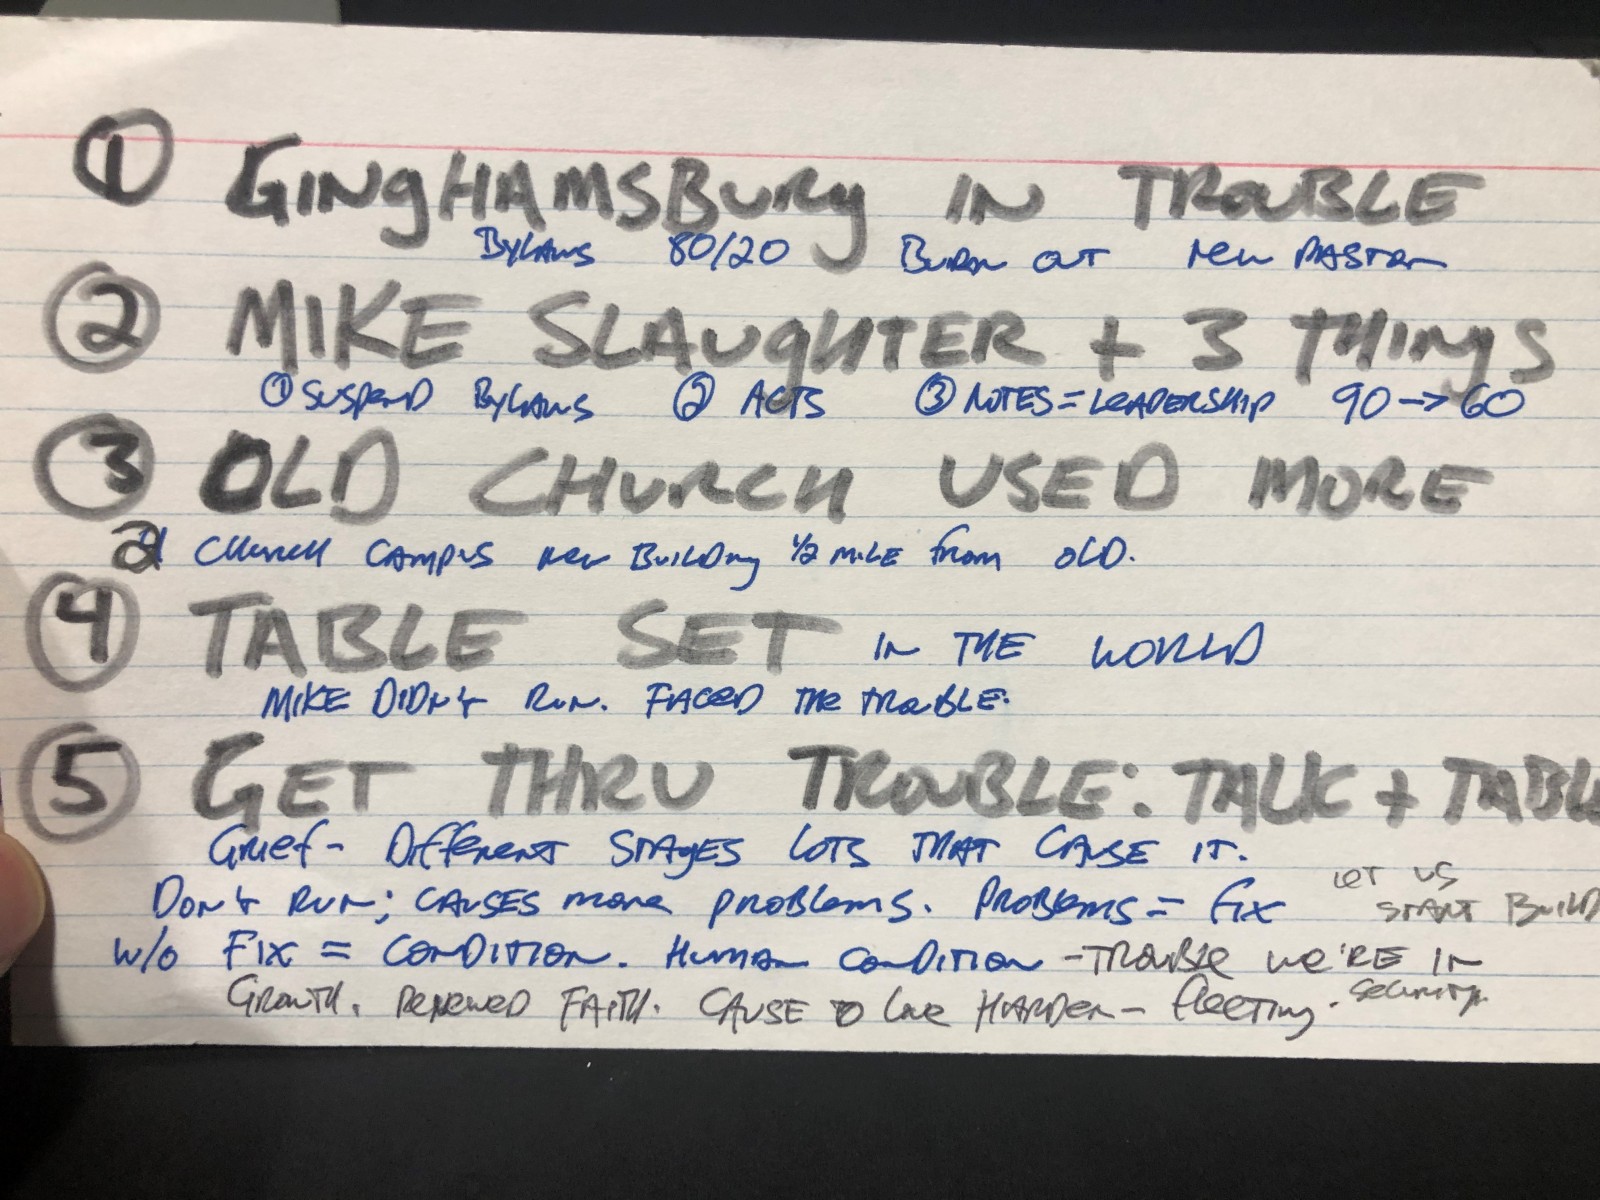 ① GINgHAMSBURy IN TROUBLE
Bylaws 80/20 Burn out new Pastor
② MIKE SLAUgHTER + 3 THINgS
① SUSPEND Bylaws ② ACTS ③ NOTES = LEADERSHIP 90 → 60
③ OLD CHURCH USED MORE
2 CHurch CAMPUS new BuilDing 1/2 MiLE from OLD.
④ TABLE SET IN THE WORLD
MIKE DIDN't Run. FACED THE TROUBLE.
⑤ GET THRU TROUBLE: TALK + TABL
Grief - Different STAgES LOTS THAT CAUSE IT.
Don't RUN; CAUSES more problems. PROBlems = Fix
LET US
START BUILD
w/o FIX = CONDITION. Human Condition - TROUBLE WE'RE IN
Growth. Renewed FAITH. CAUSE TO Love HARDER - fleeting. security.